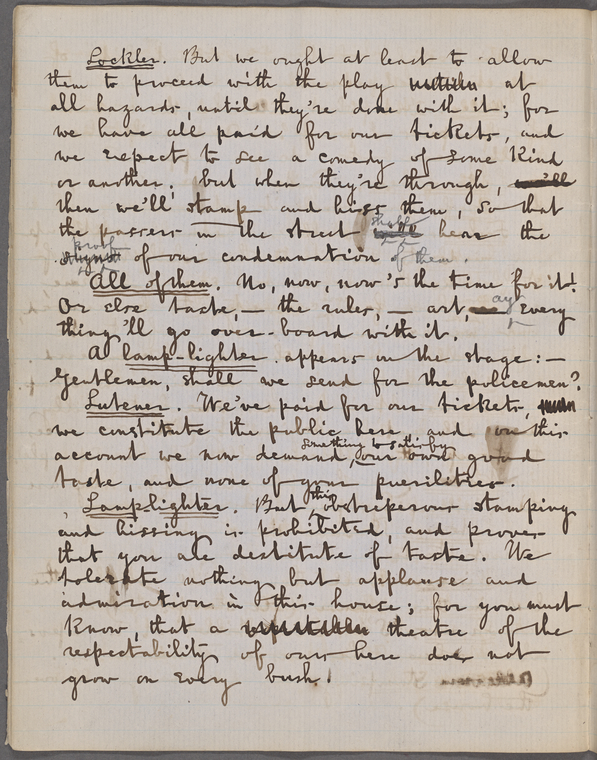 Lockler. But we ought at least to allow
them to proceed with the play at
all hazards, until they're done with it; for
we have all paid for our tickets, and
we expect to see a comedy of some kind
or another; but when they're through, we'll
then we'll stamp and hiss them, so that
the passers in the street shall hear the
proof of our condemnation of them.
All of them. No, now, now's the time for it!
Or else taste, — the rules, — art, — ay every
thing'll go over-board with it.
A lamp-lighter appears on the stage: —
Gentlemen, shall we send for the policemen?
Lutener. We've paid for our tickets,
we constitute the public here, and on this
something to satisfy
account we now demand, our own good
taste, and none of your puerilities.
Lamplighter. But this obstreperous stamping
and hissing is prohibited, and proves
that you are destitute of taste. We
tolerate nothing but applause and
admiration in this house; for you must
know, that a theatre of the
respectability of ours here does not
grow on every bush!